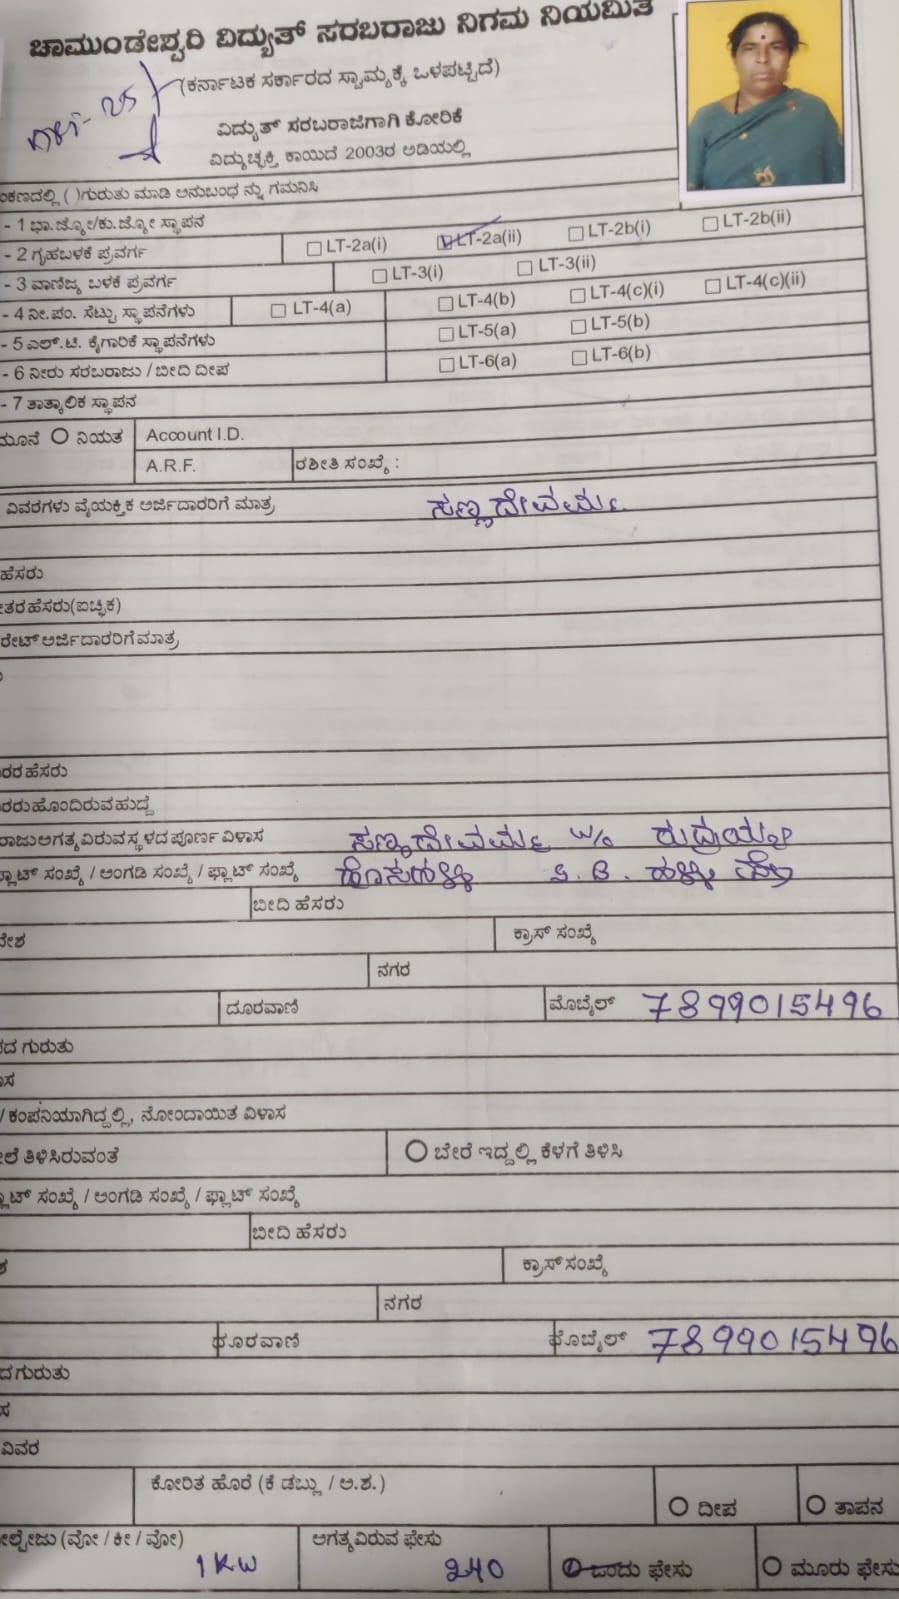 ಚಾಮುಂಡೇಶ್ವರಿ ವಿದ್ಯುತ್ ಸರಬರಾಜು ನಿಗಮ ನಿಯಮಿತ
(ಕರ್ನಾಟಕ ಸರ್ಕಾರದ ಸ್ವಾಮ್ಯಕ್ಕೆ ಒಳಪಟ್ಟಿದೆ)
ವಿದ್ಯುತ್ ಸರಬರಾಜಿಗಾಗಿ ಕೋರಿಕೆ
ವಿದ್ಯುಚ್ಛಕ್ತಿ ಕಾಯಿದೆ 2003ರ ಅಡಿಯಲ್ಲಿ
ಂಕಣದಲ್ಲಿ ( )ಗುರುತು ಮಾಡಿ ಅನುಬಂಧ ನ್ನು ಗಮನಿಸಿ
- 1 ಭಾ.ಜ್ಯೋ/ಕು.ಜ್ಯೋ ಸ್ಥಾಪನ
- 2 ಗೃಹಬಳಕೆ ಪ್ರವರ್ಗ LT-2a(i) LT-2a(ii) LT-2b(i) LT-2b(ii)
- 3 ವಾಣಿಜ್ಯ ಬಳಕೆ ಪ್ರವರ್ಗ LT-3(i) LT-3(ii)
- 4 ನೀ.ಪಂ. ಸೆಟ್ಟು ಸ್ಥಾಪನೆಗಳು LT-4(a) LT-4(b) LT-4(c)(i) LT-4(c)(ii)
- 5 ಎಲ್.ಟಿ. ಕೈಗಾರಿಕೆ ಸ್ಥಾಪನೆಗಳು LT-5(a) LT-5(b)
- 6 ನೀರು ಸರಬರಾಜು / ಬೀದಿ ದೀಪ LT-6(a) LT-6(b)
- 7 ತಾತ್ಕಾಲಿಕ ಸ್ಥಾಪನ
ಮೂನೆ ನಿಯತ Account I.D.
A.R.F. ರಶೀತಿ ಸಂಖ್ಯೆ :
ವಿವರಗಳು ವೈಯಕ್ತಿಕ ಅರ್ಜಿದಾರರಿಗೆ ಮಾತ್ರ ಸಣ್ಣದೇವಮ್ಮ
ಹೆಸರು
ತರ ಹೆಸರು(ಐಚ್ಛಿಕ)
ರೇಟ್ ಅರ್ಜಿದಾರರಿಗೆ ಮಾತ್ರ
ರರ ಹೆಸರು
ರರು ಹೊಂದಿರುವ ಹುದ್ದೆ
ರಾಜು ಅಗತ್ಯವಿರುವ ಸ್ಥಳದ ಪೂರ್ಣ ವಿಳಾಸ ಸಣ್ಣದೇವಮ್ಮ w/o ರುದ್ರಯ್ಯ
ಪ್ಲಾಟ್ ಸಂಖ್ಯೆ / ಅಂಗಡಿ ಸಂಖ್ಯೆ / ಫ್ಲಾಟ್ ಸಂಖ್ಯೆ ಹೊಸಹಳ್ಳಿ ಹಳ್ಳಿ
ಬೀದಿ ಹೆಸರು
ದೇಶ ಕ್ರಾಸ್ ಸಂಖ್ಯೆ
ನಗರ
ದೂರವಾಣಿ ಮೊಬೈಲ್ 7899015496
ದ ಗುರುತು
ಾಸ
/ ಕಂಪನಿಯಾಗಿದ್ದಲ್ಲಿ, ನೋಂದಾಯಿತ ವಿಳಾಸ
ಲೆ ತಿಳಿಸಿರುವಂತೆ ಬೇರೆ ಇದ್ದಲ್ಲಿ ಕೆಳಗೆ ತಿಳಿಸಿ
ಪ್ಲಾಟ್ ಸಂಖ್ಯೆ / ಅಂಗಡಿ ಸಂಖ್ಯೆ / ಫ್ಲಾಟ್ ಸಂಖ್ಯೆ
ಬೀದಿ ಹೆಸರು
ಶ ಕ್ರಾಸ್ ಸಂಖ್ಯೆ
ನಗರ
ದೂರವಾಣಿ ಮೊಬೈಲ್ 7899015496
ದ ಗುರುತು
ಸ
ವಿವರ
ಕೋರಿತ ಹೊರೆ (ಕೆ ಡಬ್ಲು / ಅ.ಶ.) ದೀಪ ತಾಪನ
ೋಲ್ಟೇಜು (ವೋ / ಕೀ / ವೋ) 1 KW ಅಗತ್ಯವಿರುವ ಫೇಸು 240 ಒಂದು ಫೇಸು ಮೂರು ಫೇಸು